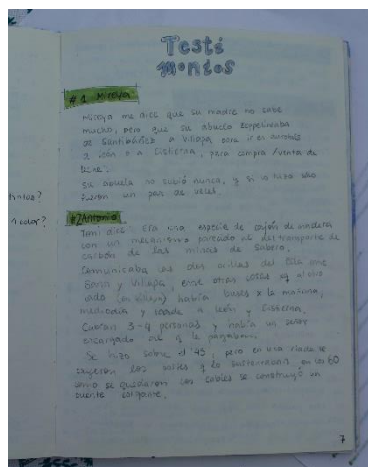 Testi
monios
#1 Mireya
Mireya me dice que su madre no sabe
mucho, pero que su abuelo
de Santibáñez a Villapa para ir en autobús
a León o a Cistierna, para compra/venta de
Su abuela no subió nunca, y si lo hizo sólo
fueron un par de veces.
#2 Antonio
Toni dice: Era una especie de cajón de madera
con un mecanismo parecido al del transporte de
carbón de las minas de Sabero.
Comunicaba las dos orillas del Esla
y Villapa, entre otras cosas pq al otro
lado (en Villapa) había buses x la mañana,
mediodía y tarde a León y Cistierna.
Cabían 3-4 personas y había un señor
encargado al q le pagaban.
Se hizo sobre el '45, pero en una riada se
los cables y lo en los 60
como se quedaron los cables se construyó un
puente colgante.
7